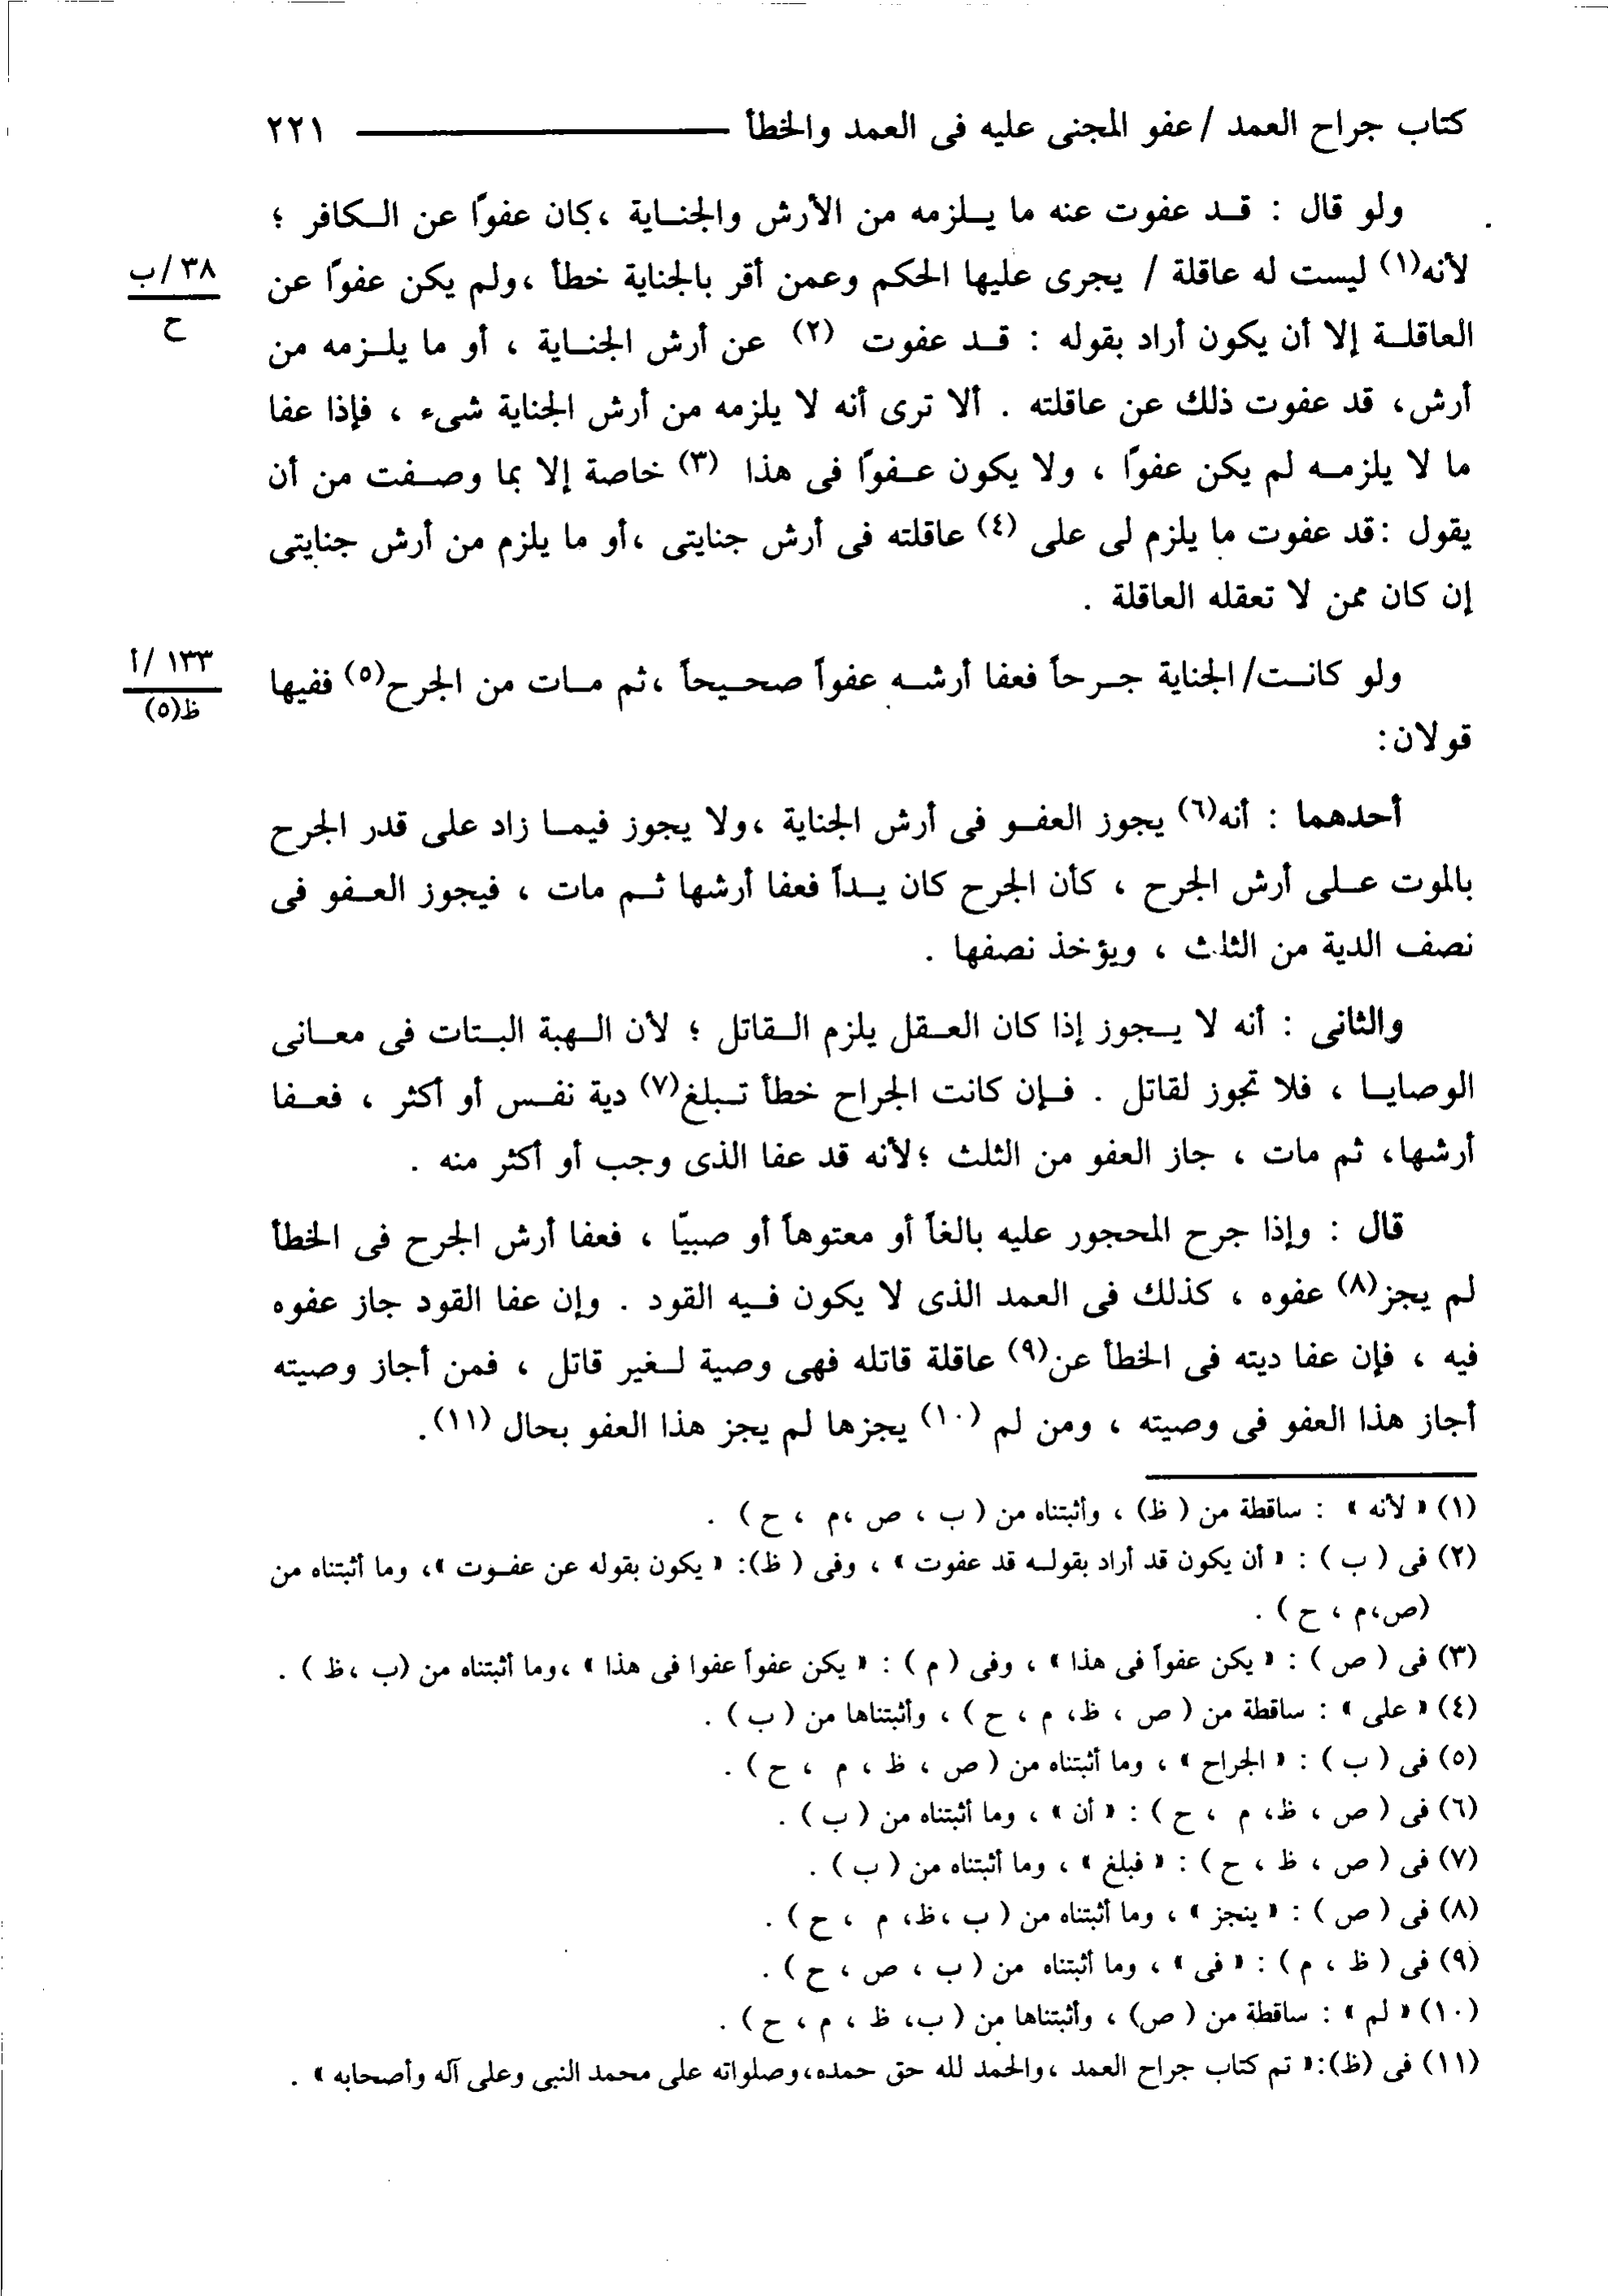 كتاب جراح العمد / عفو المجنى عليه فى العمد والخطأ ـــــــــــــ ٢٢١
ولو قال : قـد عفوت عنه ما يـلزمه من الأرش والجنـاية ،كان عفوًا عن الـكافر ؛
لأنه(١) ليست له عاقلة / يجرى عليها الحكم وعمن أقر بالجناية خطأ ،ولم يكن عفوًا عن
٣٨/ ب
ح
العاقلـة إلا أن يكون أراد بقوله : قـد عفوت (٢) عن أرش الجنـاية ، أو ما يلـزمه من
أرش، قد عفوت ذلك عن عاقلته . ألا ترى أنه لا يلزمه من أرش الجناية شىء ، فإذا عفا
ما لا يلزمـه لم يكن عفوًا ، ولا يكون عـفوًا فى هذا (٣) خاصة إلا بما وصـفت من أن
يقول :قد عفوت ما يلزم لى على (٤) عاقلته فى أرش جنايتى ،أو ما يلزم من أرش جنايتى
إن كان ممن لا تعقله العاقلة .
ولو كانـت/ الجناية جـرحاً فعفا أرشـه عفواً صحـيحاً ،ثم مـات من الجرح(٥) ففيها
١٣٣ /أ
ظ(٥)
قولان:
أحدهما : أنه(٦) يجوز العفـو فى أرش الجناية ،ولا يجوز فيمـا زاد على قدر الجرح
بالموت عـلى أرش الجرح ، كأن الجرح كان يـداً فعفا أرشها ثـم مات ، فيجوز العـفو فى
نصف الدية من الثلث ، ويؤخذ نصفها .
والثانى : أنه لا يـجوز إذا كان العـقل يلزم الـقاتل ؛ لأن الـهبة البـتات فى معـانى
الوصايـا ، فلا تجوز لقاتل . فـإن كانت الجراح خطأ تـبلغ(٧) دية نفـس أو أكثر ، فعـفا
أرشها، ثم مات ، جاز العفو من الثلث ؛لأنه قد عفا الذى وجب أو أكثر منه .
قال : وإذا جرح المحجور عليه بالغاً أو معتوهاً أو صبيًا ، فعفا أرش الجرح فى الخطأ
لم يجز(٨) عفوه ، كذلك فى العمد الذى لا يكون فـيه القود . وإن عفا القود جاز عفوه
فيه ، فإن عفا ديته فى الخطأ عن(٩) عاقلة قاتله فهى وصية لـغير قاتل ، فمن أجاز وصيته
أجاز هذا العفو فى وصيته ، ومن لم (١٠) يجزها لم يجز هذا العفو بحال (١١).
(١) « لأنه » : ساقطة من ( ظ) ، وأثبتناه من ( ب ، ص ،م ، ح ) .
(٢) فى ( ب ) : « أن يكون قد أراد بقولـه قد عفوت » ، وفى ( ظ): « يكون بقوله عن عفـوت »، وما أثبتناه من
(ص،م ، ح ) .
(٣) فى ( ص ) : « يكن عفواً فى هذا » ، وفى ( م ) : « يكن عفواً عفوا فى هذا » ،وما أثبتناه من (ب ،ظ ) .
(٤) « على » : ساقطة من ( ص ، ظ، م ، ح ) ، وأثبتناها من ( ب ) .
(٥) فى ( ب ) : « الجراح » ، وما أثبتناه من ( ص ، ظ ، م ، ح ) .
(٦) فى ( ص ، ظ، م ، ح ) : « أن » ، وما أثبتناه من ( ب ) .
(٧) فى ( ص ، ظ ، ح ) : « فبلغ » ، وما أثبتناه من ( ب ) .
(٨) فى ( ص ) : « ينجز » ، وما أثبتناه من ( ب ،ظ، م ، ح ) .
(٩) فى ( ظ ، م ) : « فى » ، وما أثبتناه من ( ب ، ص ، ح ) .
(١٠) « لم » : ساقطة من ( ص) ، وأثبتناها من ( ب، ظ ، م ، ح ) .
(١١) فى (ظ):« تم كتاب جراح العمد ،والحمد لله حق حمده،وصلواته على محمد النبى وعلى آله وأصحابه » .